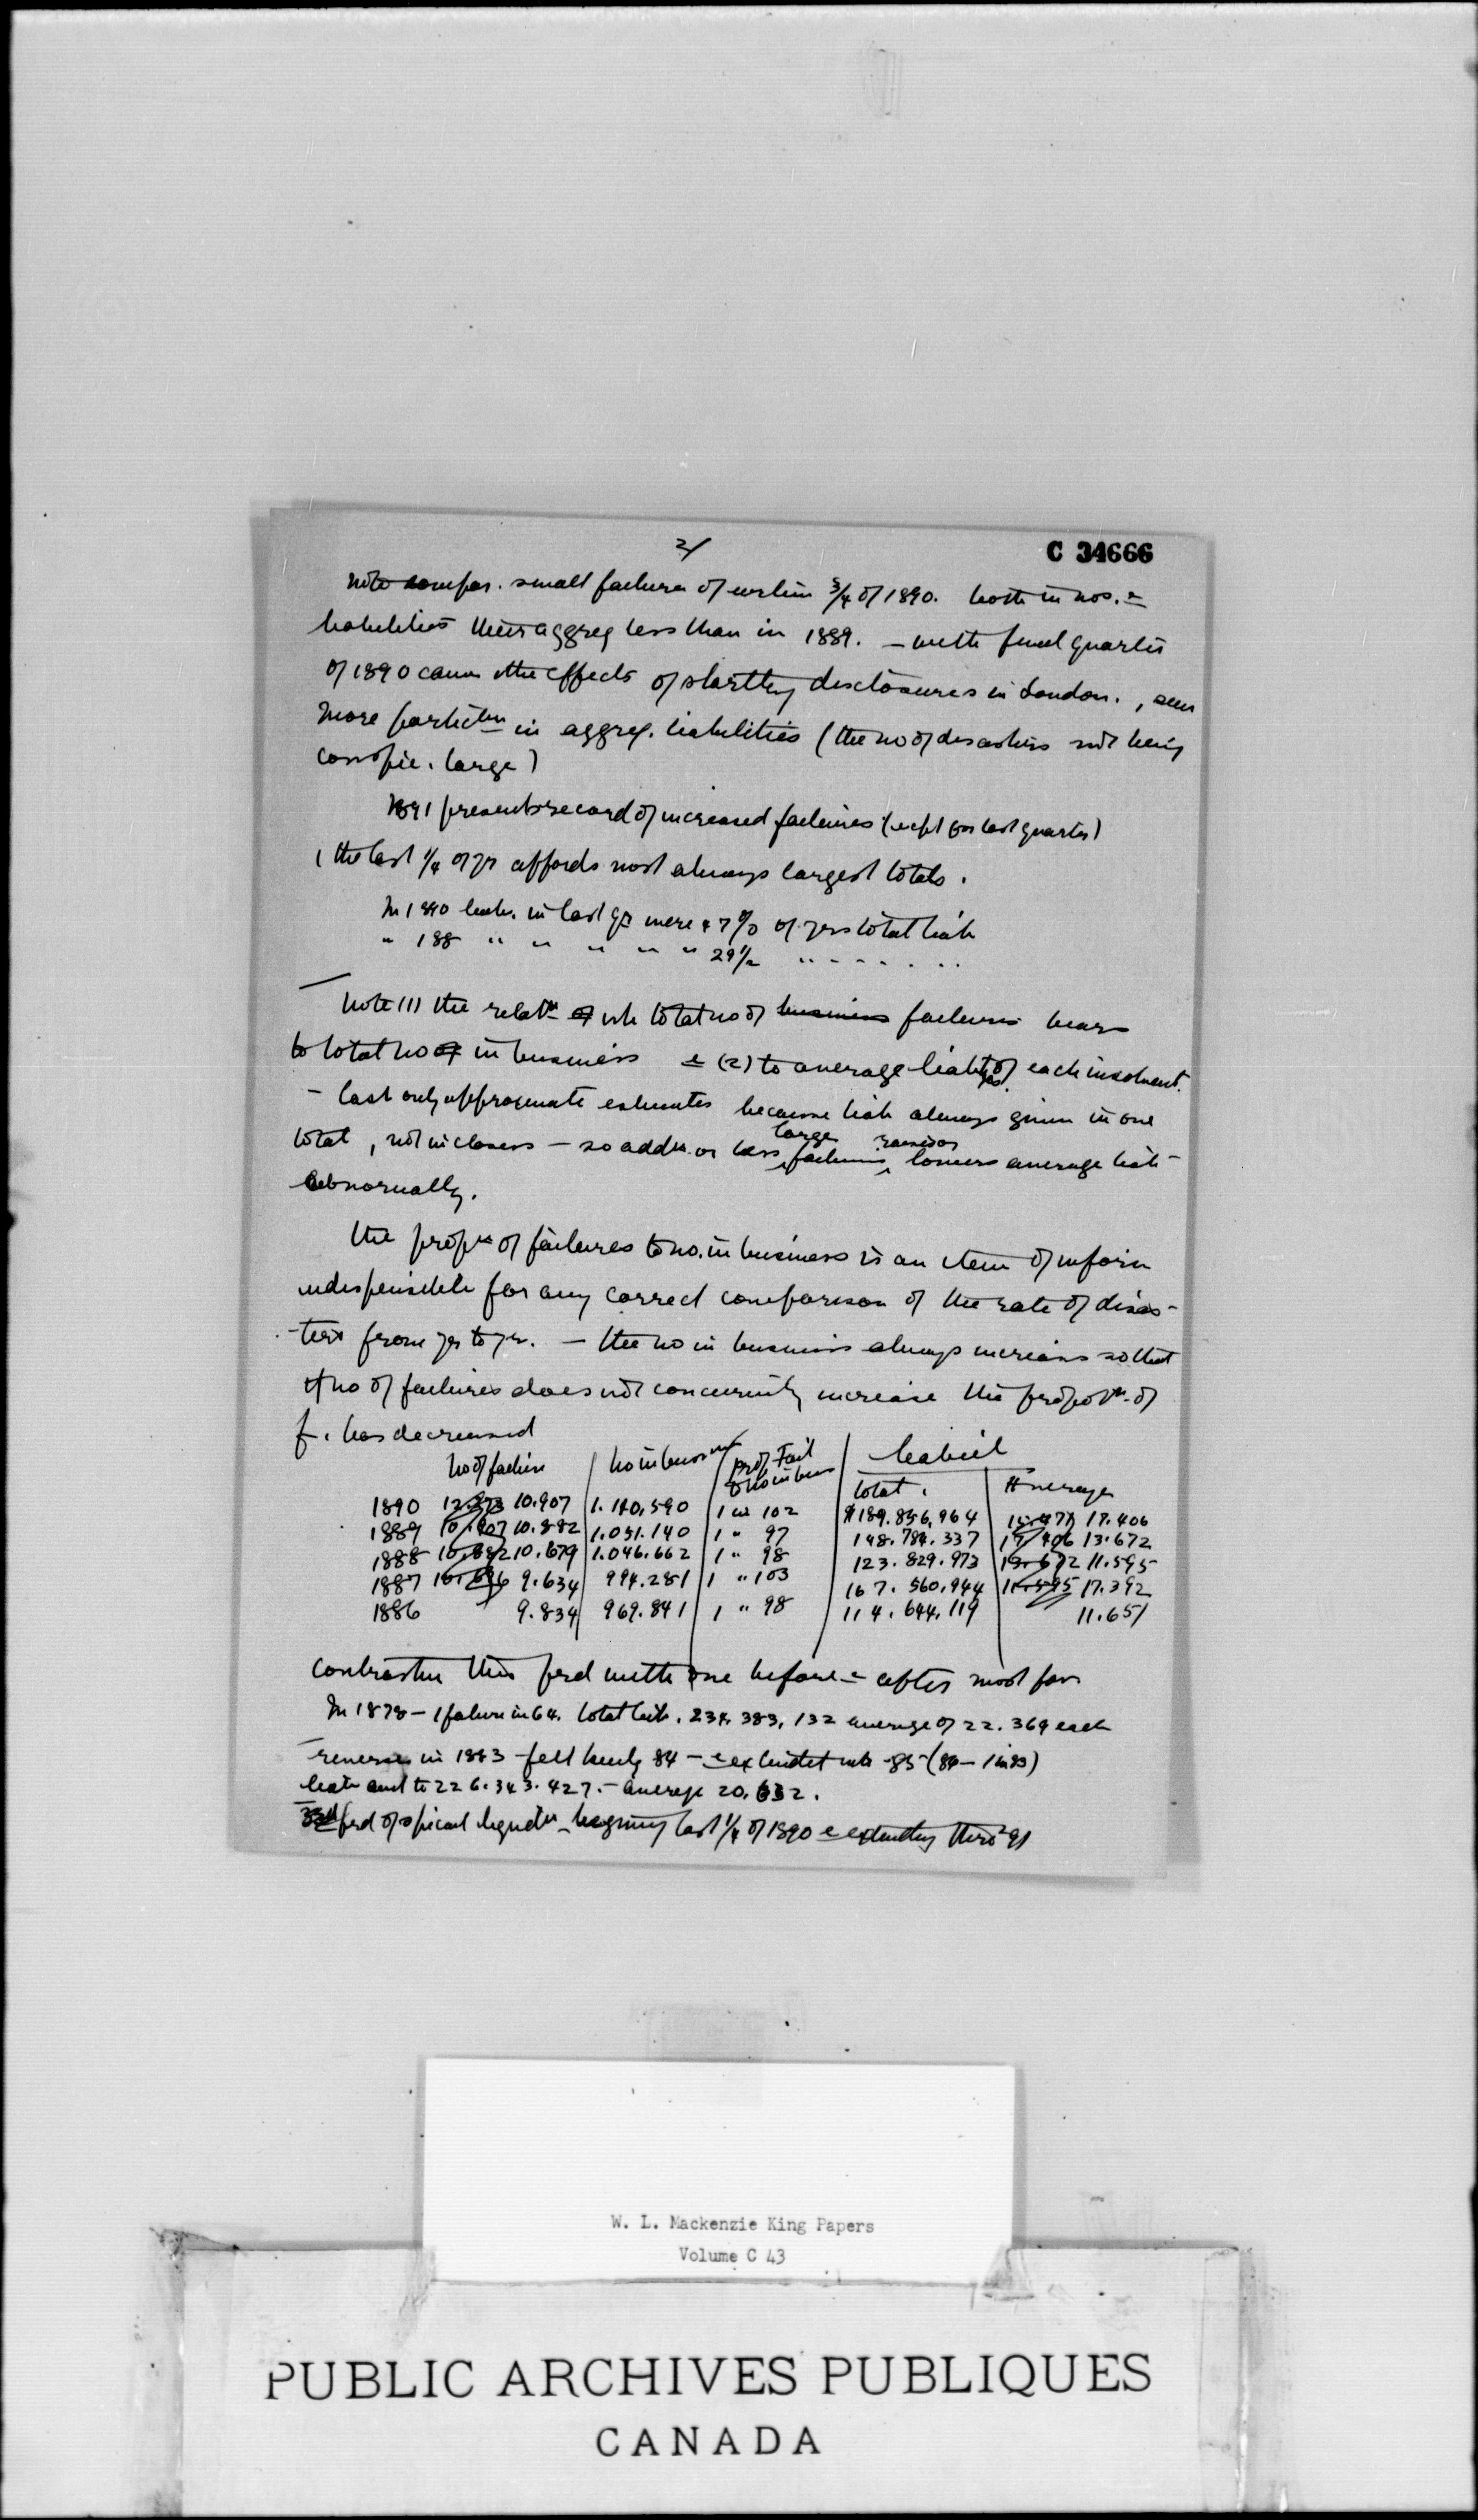 2/
C 34666
note compar. small failures of earlier 3/4 of 1890. both in nos. &
liabilities their aggreg less than in 1889. – with final quarter
of 1890 came the effects of startling disclosures in London., seen
more particlem in aggreg. liabilities (the no of disasters not being
conspic. large)
1891 presents record of increased failures (except for last quarter)
( the last 1/4 of yr affords most always largest totals.
In 1890 liab. in last qr were 47% of yrs total liab
" 188 " " " " " 29 1/2 " " " " " "
note (1) the relatn of wh total no of business failures bears
to total no of in business & (2) to average liabties of each insolvent.
– last only approximate estimates because liab always given in one
total, not in classes – so addn or less large failures raises or lowers average liab
abnormally.
the propn of failures to no. in business is an item of inform
indispensible for any correct comparison of the rate of disas-
-ters from yr to yr. – the no in business always increases so that
if no of failures does not concurrently increase the proportn of
f. has decreased
no of failure | no in business | prof Fail to no in bus | Liabil
total. | Average
1890 12.273 10.907 | 1.110,590 | 1 in 102 | $189.856,964 | 15.477 17.406
1889 10.907 10.882 | 1.051.140 | 1 " 97 | 148.784.337 | 17.406 13.672
1888 10.882 10.679 | 1.046.662 | 1 " 98 | 123.829.973 | 13.672 11.595
1887 9.634 | 994.281 | 1 " 103 | 167.560,944 | 11.595 17.392
1886 9.834 | 969.841 | 1 " 98 | 114.644,119 | 11.651
contrasting this perd with one before & after most fav
In 1878 – 1 failure in 64. total liab. 234,383,132 average of 22.369 each
reverses in 1883 – fell heavily 84 – & extended into 85 (84 – 1 in 83)
liab amt to 226.343.427. – average 20.632.
3rd perd of special liquidtn – beginning last 1/4 of 1890 & extending thro 91
W. L. Mackenzie King Papers
Volume C 43
PUBLIC ARCHIVES PUBLIQUES
CANADA